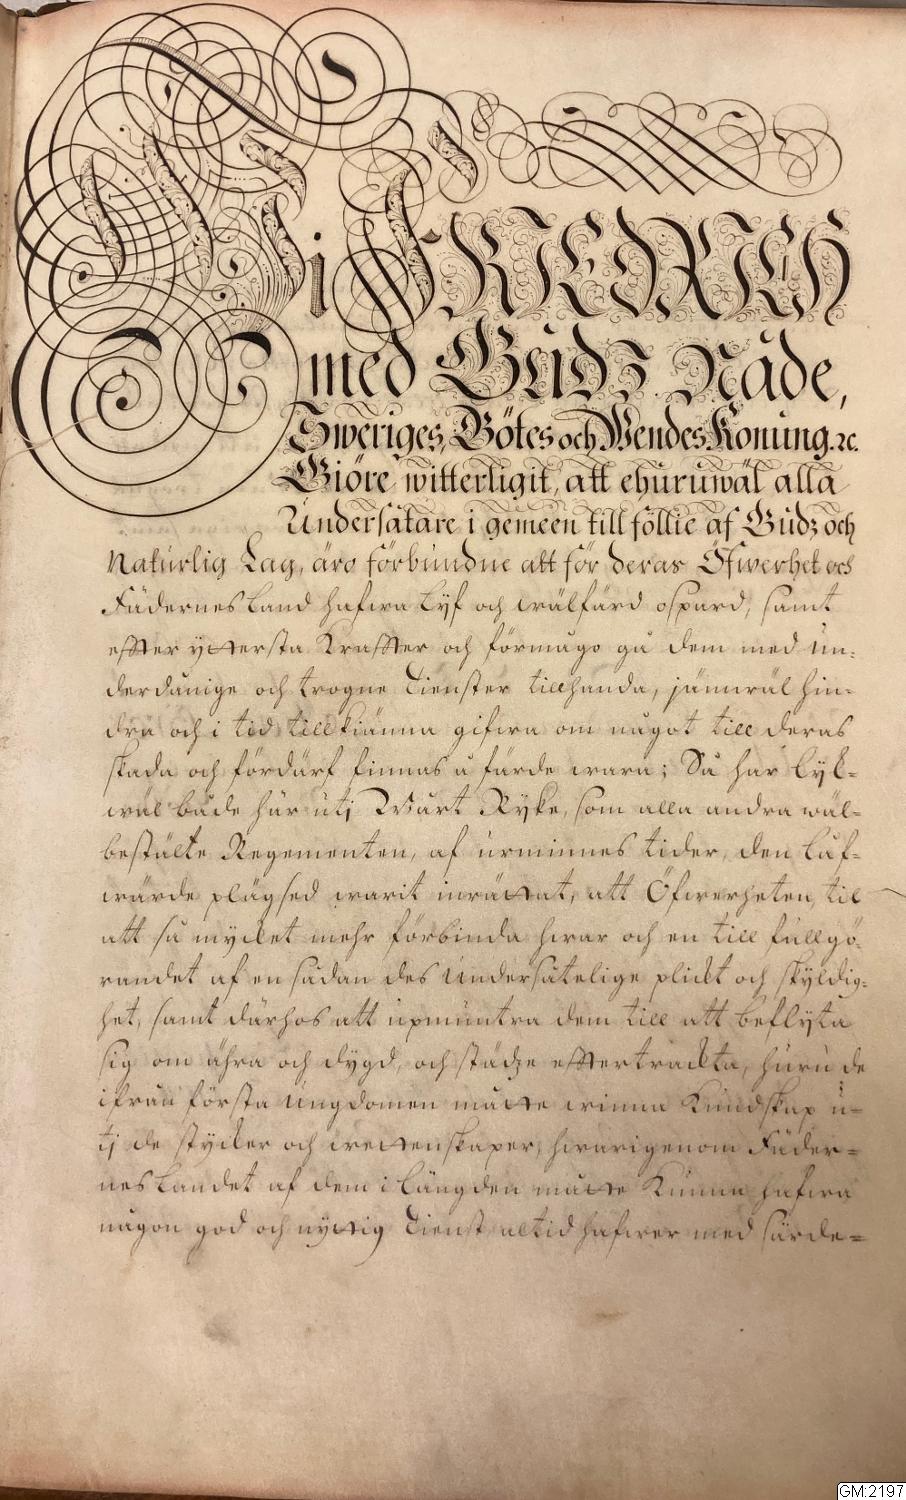 Wi FRIEDRICH
med Gudz Nåde,
Sweriges, Götes och Wendes Konung. ꝛc.
Giöre witterligit, att ehuruwäl alla
Undersåtare i gemeen till föllie af Gudz och
Naturlig Lag, äro förbundne att för deras Öfwerhet och
Fädernesland hafwa Lyf och wälfärd ospard, samt
effter yttersta Kraffter och förmågo gå dem med un-
derdånige och trogne Tienster tillhanda, jämwäl hin-
dra och i tid tillkiänna gifwa om något till deras
skada och fördärf finnas å färde wara; Så har lyk-
wäl både här utj Wårt Ryke, som alla andra wäl-
bestälte Regementen, af urminnes tider, den låf-
wärde plägsed warit inrättat, att Öfwerheten, til
att så mycket mehr förbinda hwar och en till fullgö-
randet af en sådan des undersåtelige plickt och skyldig-
het, samt därhos att upmuntra dem till att beflyta
sig om ähra och dygd, och städze effter trackta, huru de
ifrån första ungdomen måtte winna Kundskap u-
tj de stycker och wettenskaper, hwarigenom Fäder-
neslandet af dem i längden måtte Kunna hafwa
någon god och nyttig Tienst altid hafwer med särde-
GM:2197